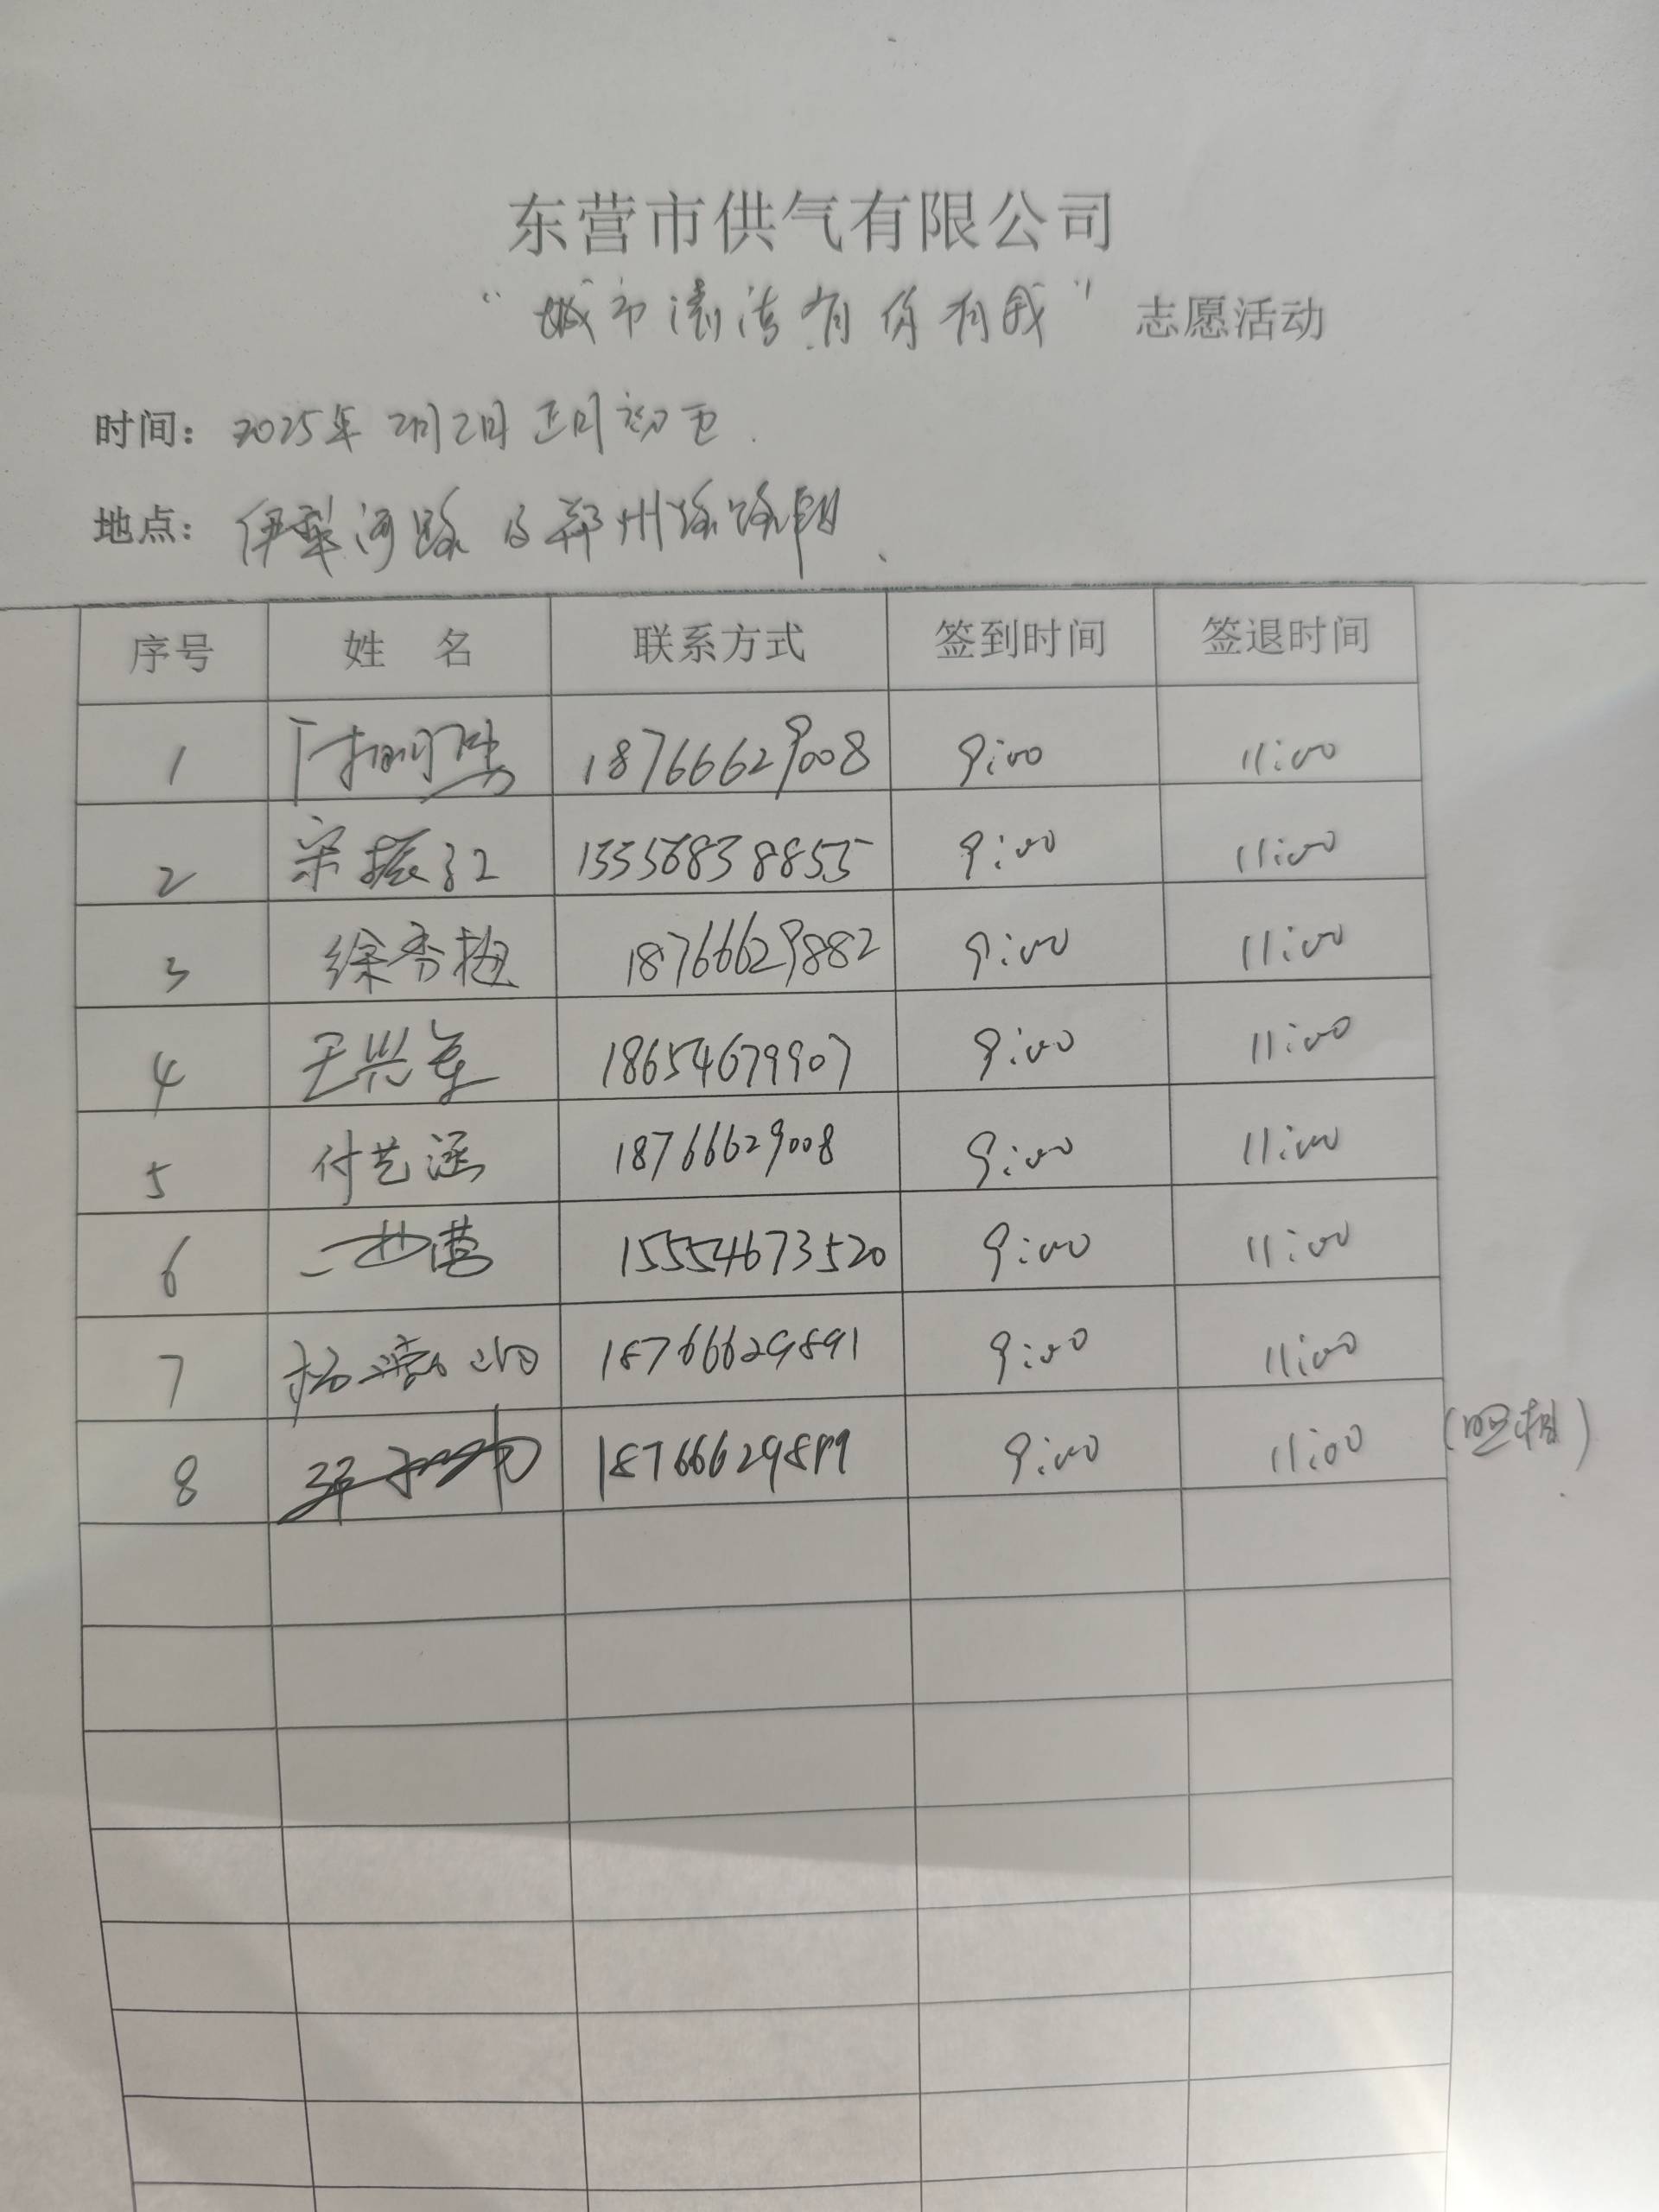 东营市供气有限公司
“城市清洁有你有我”志愿活动
时间：2025年2月2日 正月初五.
地点：伊犁河路 郑州路路段
序号 姓 名 联系方式 签到时间 签退时间
1 18766629008 9:00 11:00
2 宋振江 13356838855 9:00 11:00
3 徐秀梅 18766629882 9:00 11:00
4 王兴军 18654679907 9:00 11:00
5 付艺涵 18766629008 9:00 11:00
6 15554673520 9:00 11:00
7 杨 18766629891 9:00 11:00
8 18766629889 9:00 11:00 (照相)